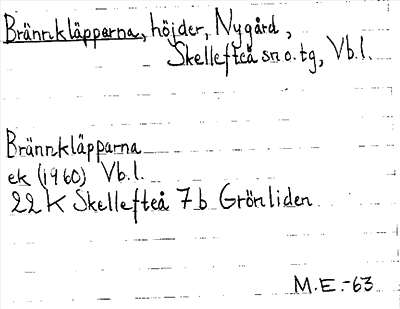 Brännkläpperna, höjder, Nygård,
Skellefteå sn o. tg, Vb.l.
Brännkläpparna
ek (1960) Vb.l.
22 K Skellefteå 7b Grönliden
M.E.-63